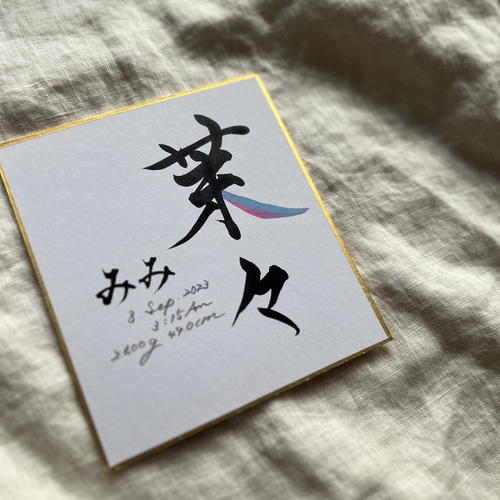 々
みみ
8. Sep. 2023
3:15 Am
2600g 49.0cm